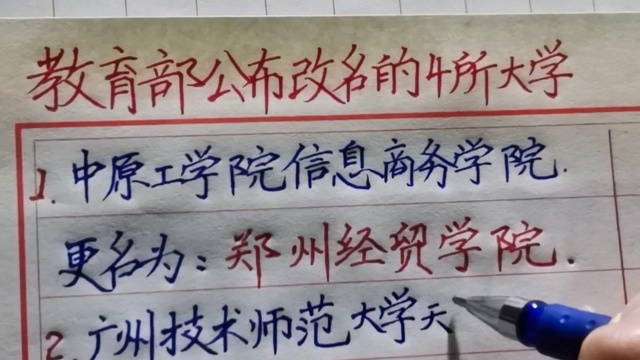 教育部公布改名的4所大学
1.中原工学院信息商务学院.
更名为：郑州经贸学院.
2.广州技术师范大学天